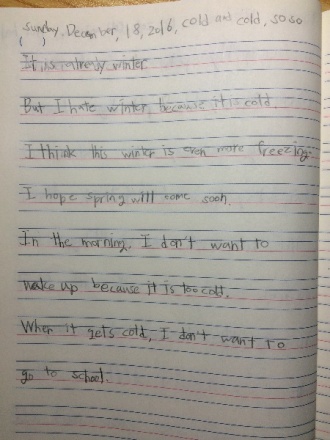 Sunday, December, 18, 2016, cold and cold, so so
( )
It is already winter
But I hate winter, because it is cold.
I think this winter is even more freezing.
I hope spring will come soon.
In the morning, I don't want to
wake up because it is too cold.
When it gets cold, I don't want to
go to school.